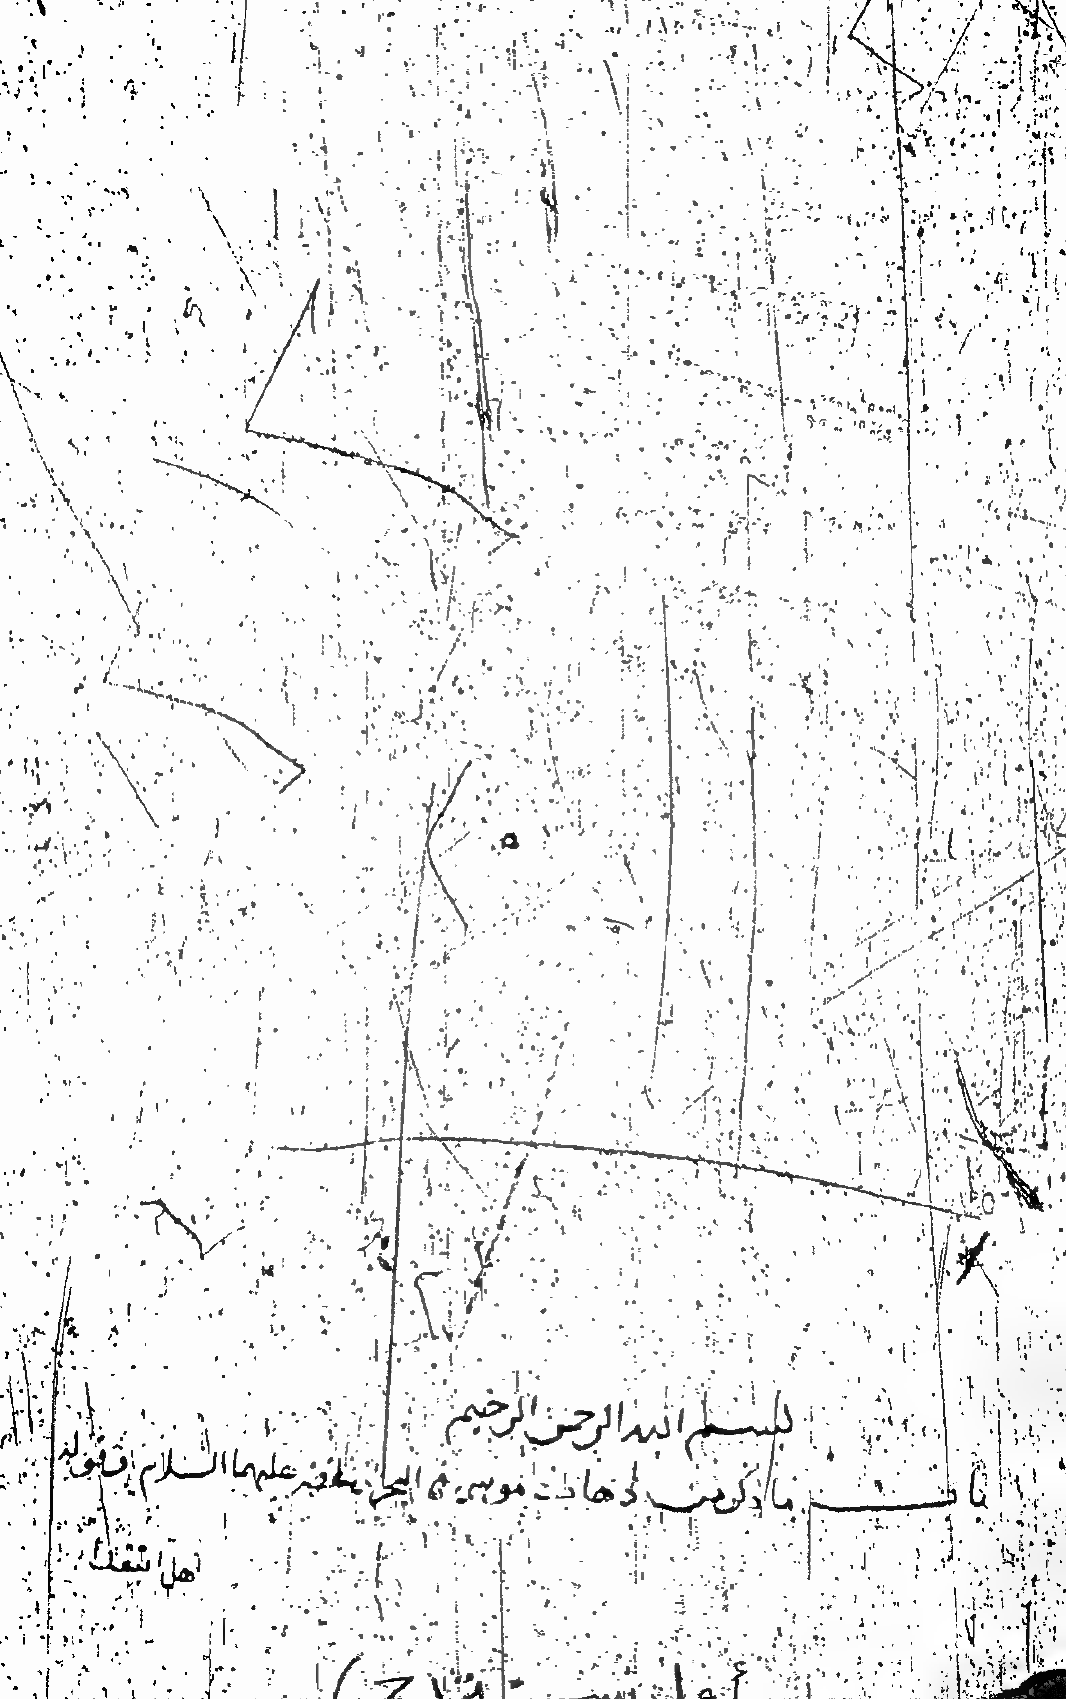 بسم الله الرحمن الرحيم
باب ما ذكر من ذهاب موسى في البحر الى الخضر عليهما السلام وقوله
هل اتبعك